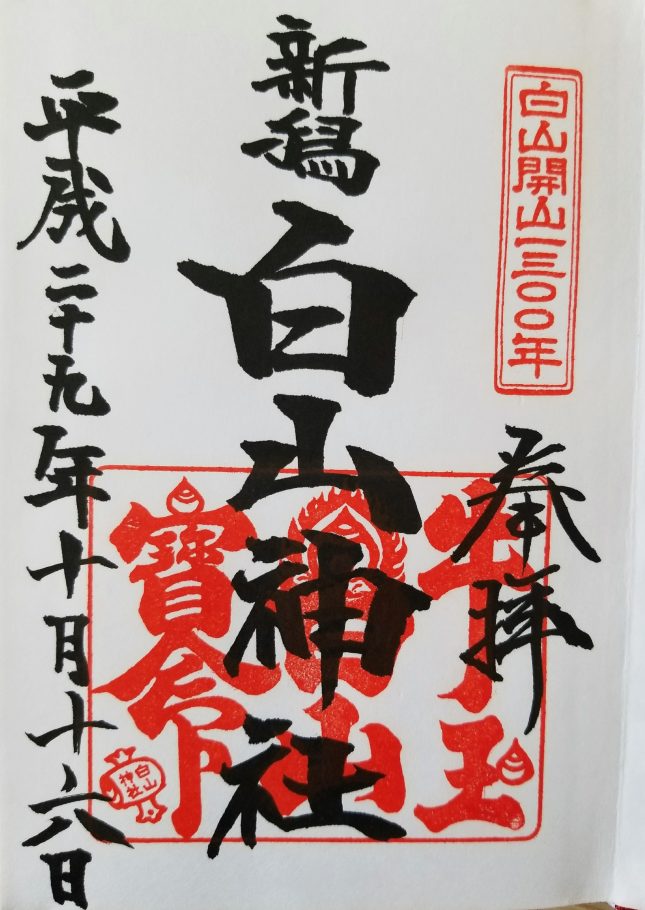 白山開山一三〇〇年
奉拝
新潟
白山神社
平成二十九年十月十六日
牛王
山
寶命
白山
神社